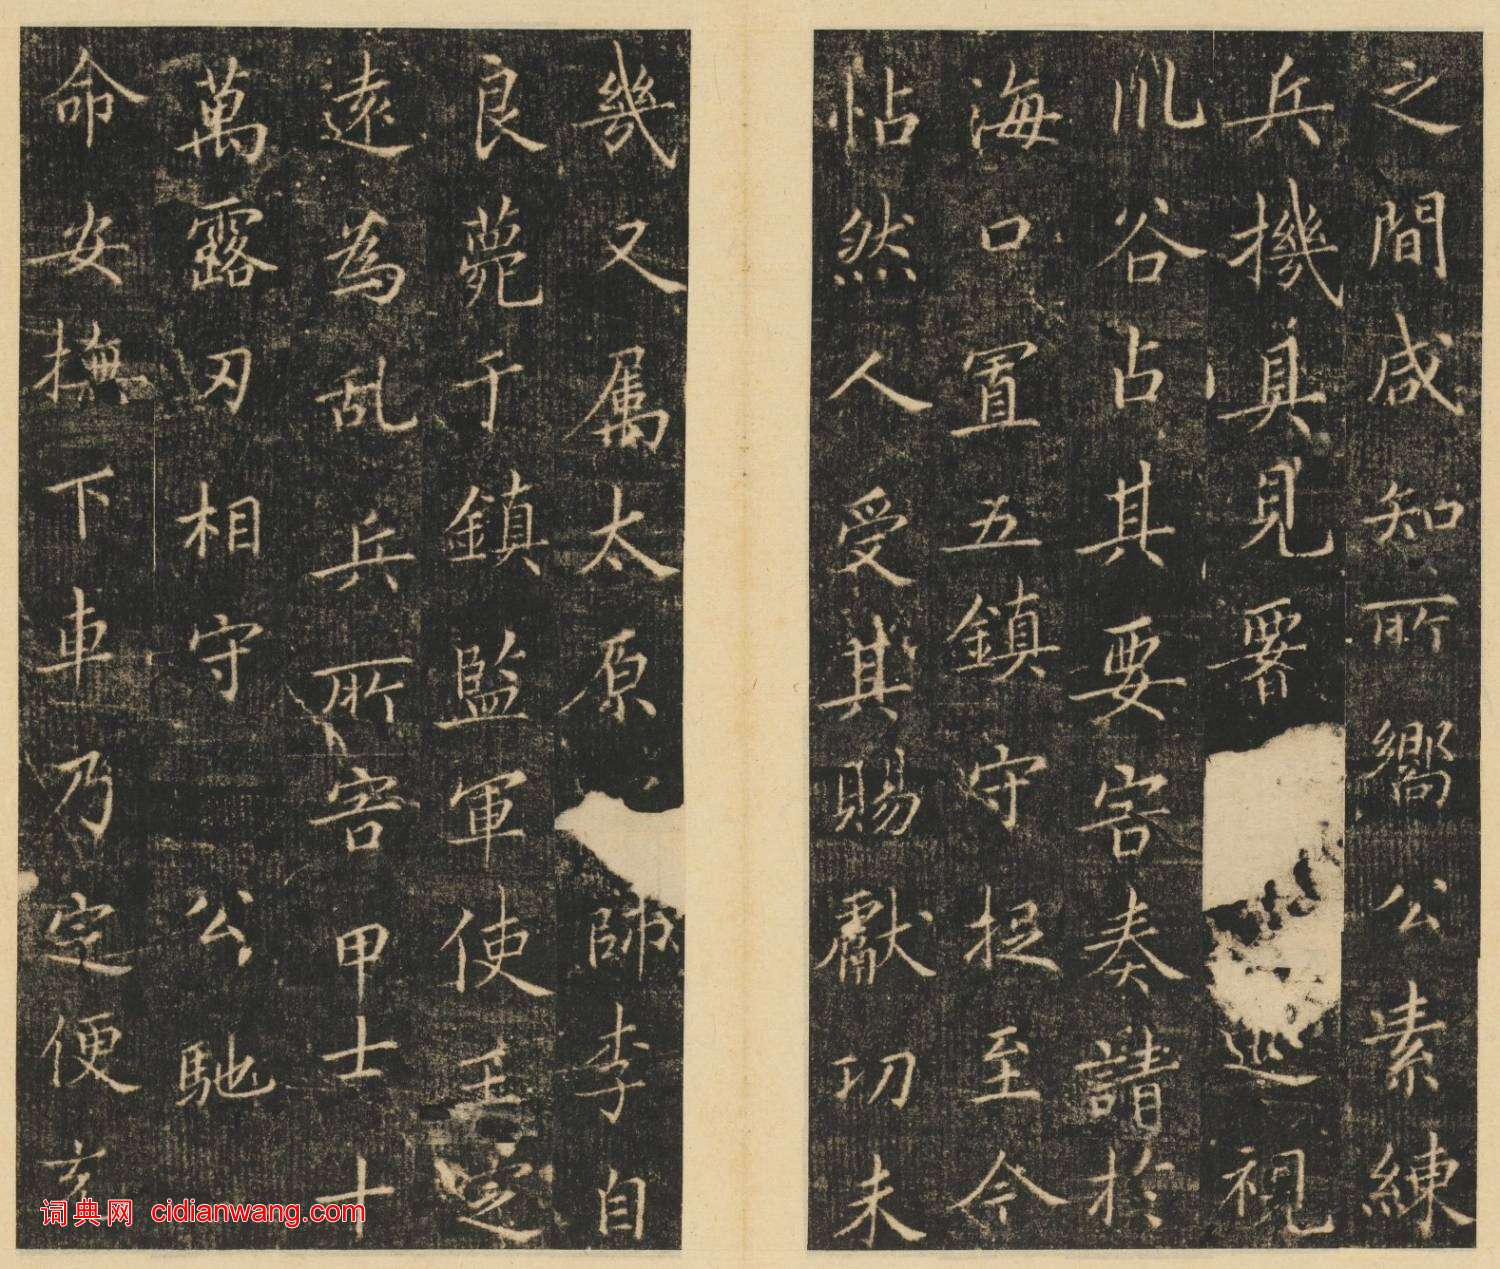 之間咸知所嚮公素練
兵機具見署巡視
川谷占其要害奏請於
海口置五鎮守捉至今
帖然人受其賜獻功未
幾又属太原帥李自
良薨于鎮監軍使王定
遠為乱兵所害甲士十
萬露刃相守公馳
命安撫下車乃定便充
词典网 cidianwang.com